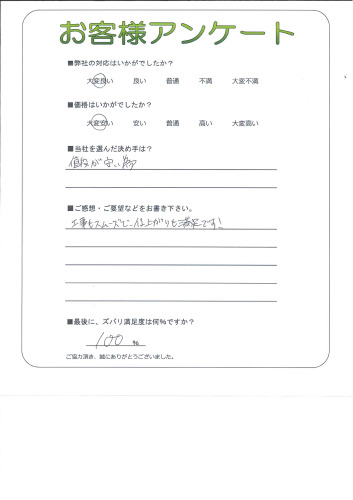 お客様アンケート
■弊社の対応はいかがでしたか？
大変良い 良い 普通 不満 大変不満
■価格はいかがでしたか？
大変安い 安い 普通 高い 大変高い
■当社を選んだ決め手は？
値段が安い為
■ご感想・ご要望などをお書き下さい。
工事もスムーズで、仕上がりも満足です！
■最後に、ズバリ満足度は何％ですか？
100 %
ご協力頂き、誠にありがとうございました。